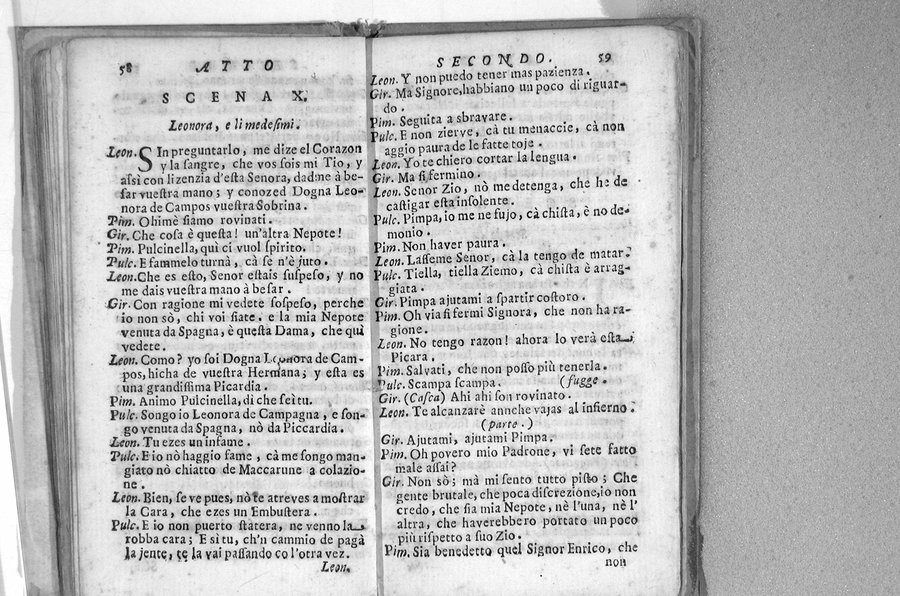 58 ATTO
SCENA X.
Leonora, e li medesimi.
Leon. SIn preguntarlo, me dize el Corazon
y la sangre, che vos sois mi Tio, y
assì con lizenzia d'esta Senora, dadme à be-
sar vuestra mano; y conozed Dogna Leo-
nora de Campos vuestra Sobrina.
Pim. Ohimè siamo rovinati.
Gir. Che cosa è questa! un'altra Nepote!
Pim. Pulcinella, quì ci vuol spirito.
Pulc. E fammelo turnà, cà se n'è juto.
Leon. Che es esto, Senor estais suspeso, y no
me dais vuestra mano à besar.
Gir. Con ragione mi vedete sospeso, perche
io non sò, chi voi siate. e la mia Nepote
venuta da Spagna, è questa Dama, che quì
vedete.
Leon. Como? yo soi Dogna Leonora de Cam-
pos, hicha de vuestra Hermana; y esta es
una grandissima Picardia.
Pim. Animo Pulcinella, di che sei tu.
Pulc. Songo io Leonora de Campagna, e son-
go venuta da Spagna, nò da Piccardia.
Leon. Tu ezes un infame.
Pulc. E io nò haggio fame, cà me songo man-
giato nò chiatto de Maccarune a colazio-
ne.
Leon. Bien, se ve pues, nò te atreves a mostrar
la Cara, che ezes un Embustera.
Pulc. E io non puerto statera, ne venno la
robba cara; E sì tu, ch'n cammio de pagà
la jente, te la vai passando co l'otra vez.
Leon.
SECONDO. 59
Leon. Y non puedo tener mas pazienza.
Gir. Ma Signore, habbiano un poco di riguar-
do.
Pim. Seguita a sbravare.
Pulc. E non zierve, cà tu menaccie, cà non
aggio paura de le fatte toje.
Leon. Yo te chiero cortar la lengua.
Gir. Ma si fermino.
Leon. Senor Zio, nò me detenga, che he de
castigar esta insolente.
Pulc. Pimpa, io me ne fujo, cà chista, è no de-
monio.
Pim. Non haver paura.
Leon. Lasseme Senor, cà la tengo de matar.
Pulc. Tiella, tiella Ziemo, cà chista è arrag-
giata.
Gir. Pimpa ajutami a spartir costoro.
Pim. Oh via si fermi Signora, che non ha ra-
gione.
Leon. No tengo razon! ahora lo verà esta
Picara.
Pim. Salvati, che non posso più tenerla.
Pulc. Scampa scampa. (fugge.
Gir. (Casca) Ahi ahi son rovinato.
Leon. Te alcanzarè annche vajas al infierno.
(parte.)
Gir. Ajutami, ajutami Pimpa.
Pim. Oh povero mio Padrone, vi sete fatto
male assai?
Gir. Non sò; mà mi sento tutto pisto; Che
gente brutale, che poca discrezione, io non
credo, che sia mia Nepote, nè l'una, nè l'
altra, che haverebbero portato un poco
più rispetto a suo Zio.
Pim. Sia benedetto quel Signor Enrico, che
non